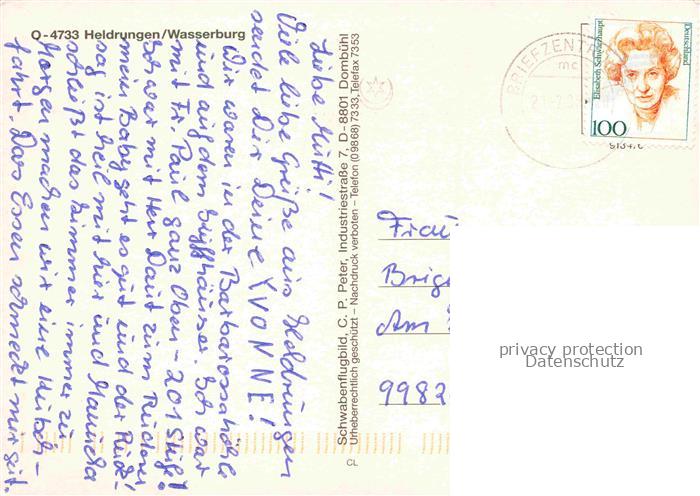 Q-4733 Heldrungen/Wasserburg
Liebe Mutti!
Viele liebe Grüße aus Heldrungen
sendet Dir Deine YVONNE!
Wir waren in der Barbarossahöhle
und auf dem Kyffhäuser. Ich war
mit Fr. Paul ganz Oben – 201 Stufen!
Ich war mit Herr Dant zum Rudern
mein Baby geht es gut und der
sag ist heil mit hier und
schließt das Zimmer immer zu
Morgen machen wir eine Kutsch-
fahrt. Das Essen schmeckt mir gut.
Schwabenflugbild, C. P. Peter, Industriestraße 7, D-8801 Dombühl
Urheberrechtlich geschützt – Nachdruck verboten – Telefon (09868) 7333, Telefax 7353
CL
BRIEFZENTR
mc
Elisabeth Schwarzhaupt
Deutschland
100
Frau
Brig
Am
9982
privacy protection
Datenschutz